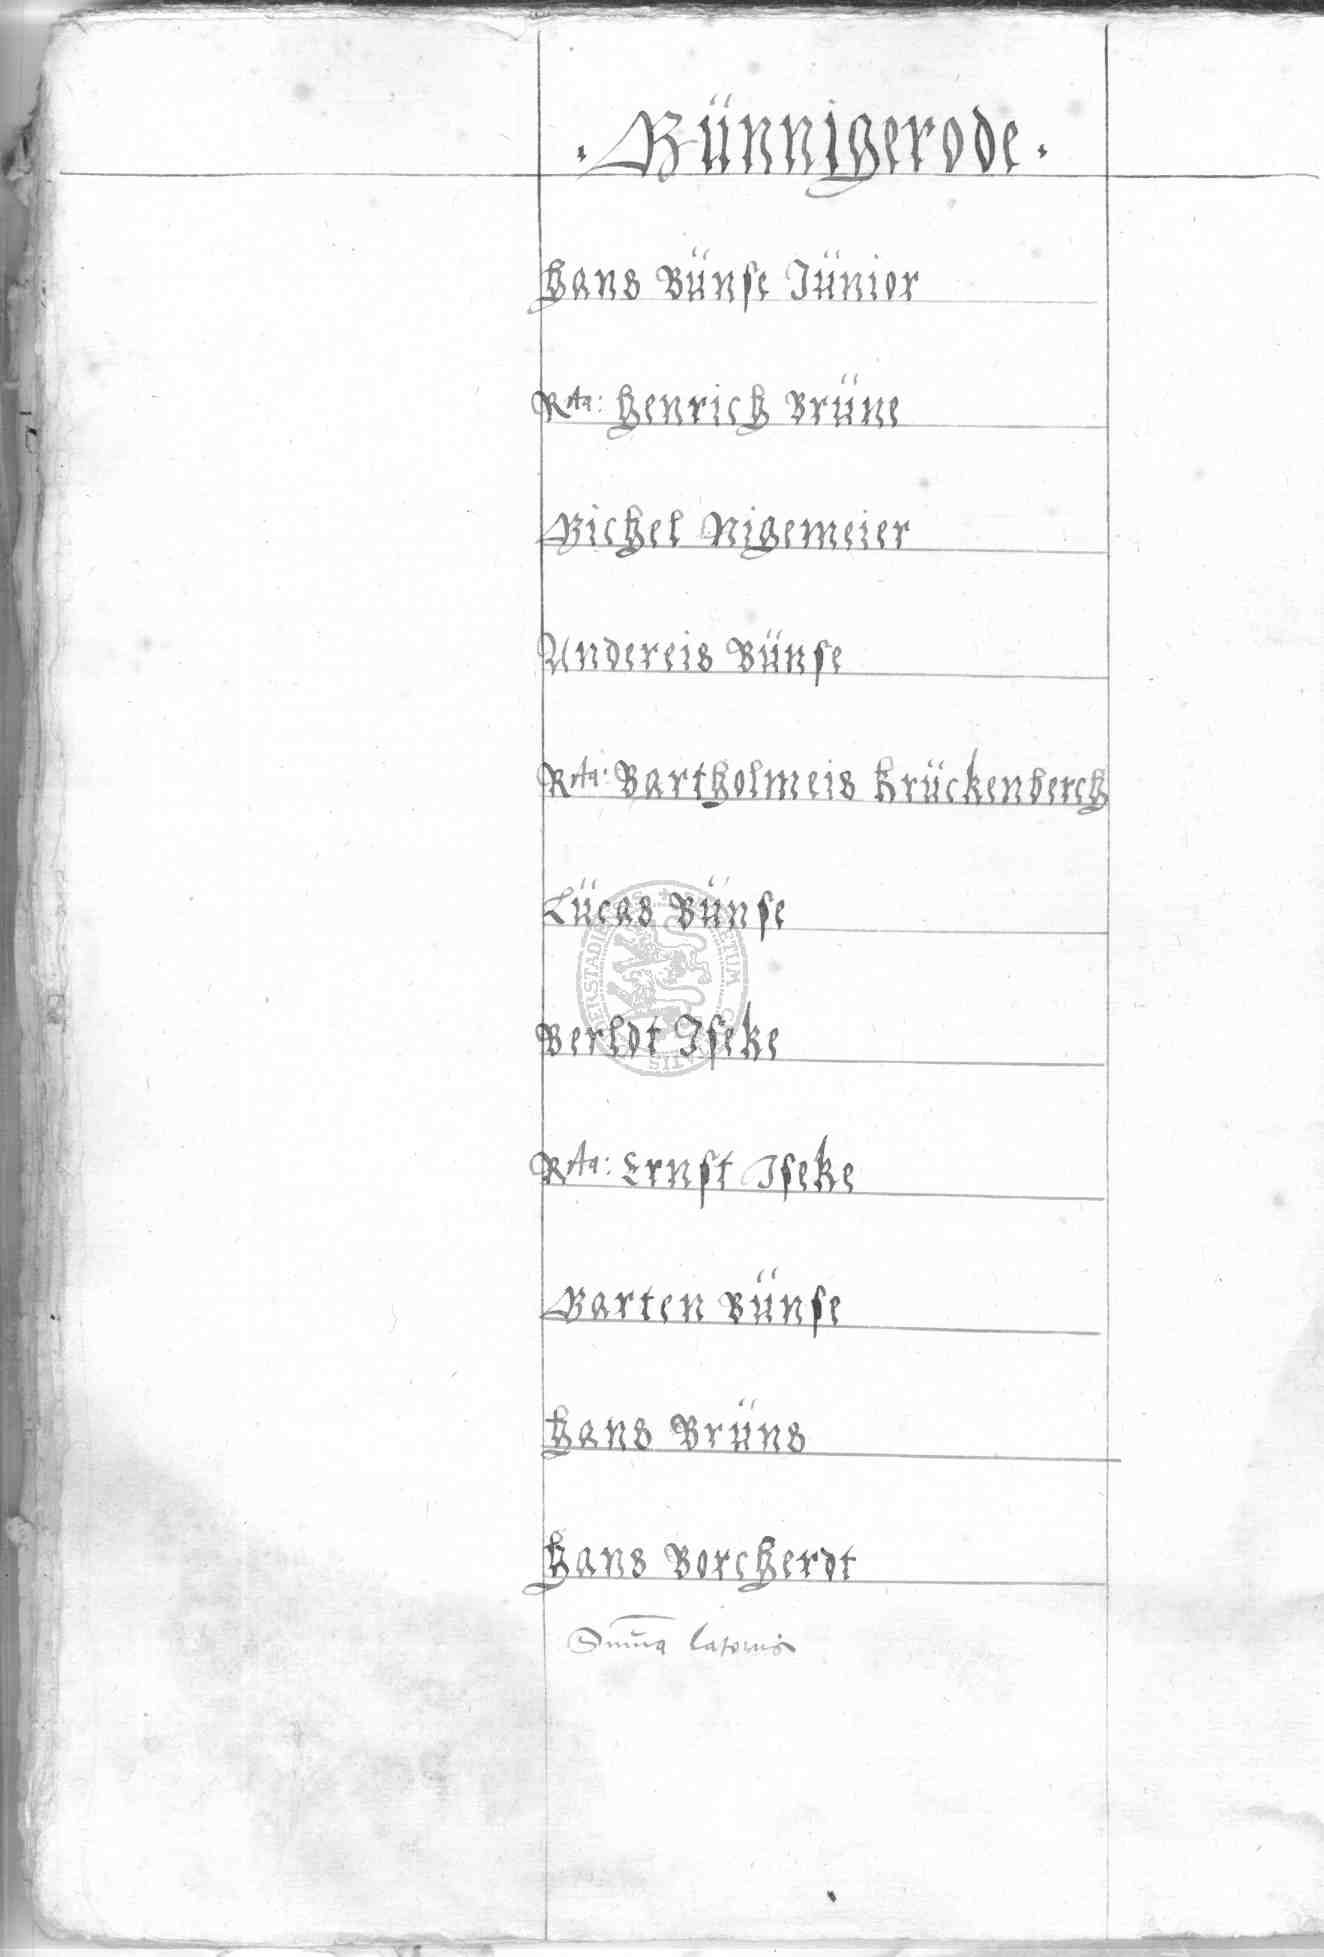 · Münnigerode ·
Hans Bünse Jünior
Rta: Henrich Brüne
Michel Nigemeier
Andereis Bünse
Rta: Bartholmeis Krückenberch
Lücas Bünse
Berldt Iseke
Rta: Ernst Iseke
Marten Bünse
Hans Brüns
Hans Borcherdt
Sum̄a lateris